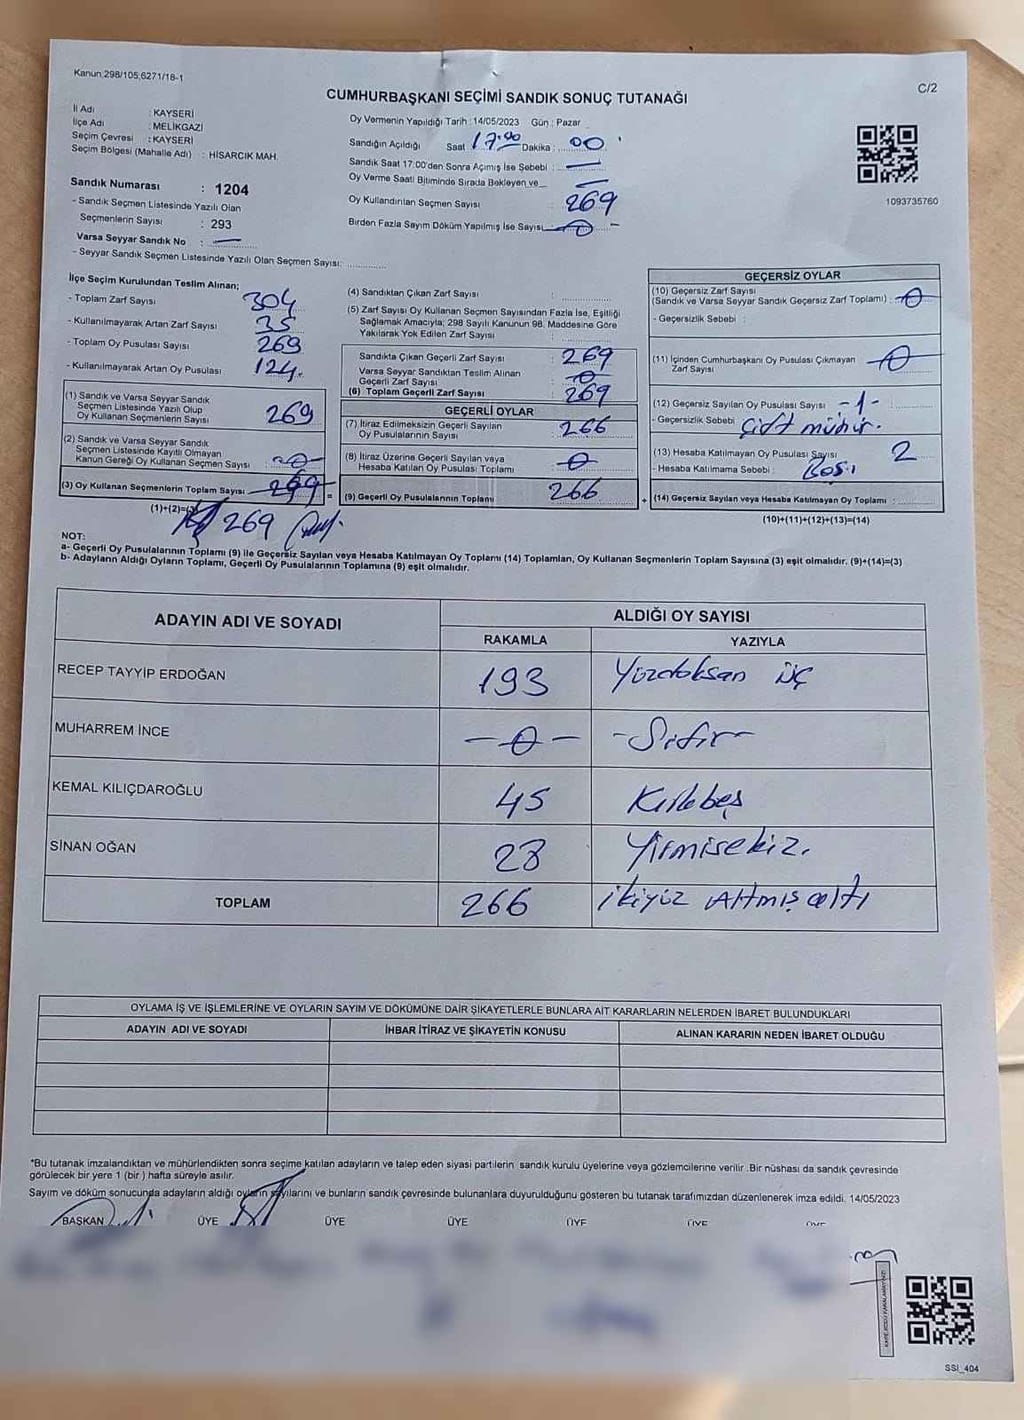 Kanun 298/105,6271/18-1
C/2
CUMHURBAŞKANI SEÇİMİ SANDIK SONUÇ TUTANAĞI
İl Adı : KAYSERİ
İlçe Adı : MELİKGAZİ
Seçim Çevresi : KAYSERİ
Seçim Bölgesi (Mahalle Adı) : HİSARCIK MAH.
Sandık Numarası : 1204
- Sandık Seçmen Listesinde Yazılı Olan
Seçmenlerin Sayısı : 293
Varsa Seyyar Sandık No : —
- Seyyar Sandık Seçmen Listesinde Yazılı Olan Seçmen Sayısı:
Oy Vermenin Yapıldığı Tarih : 14/05/2023 Gün : Pazar
Sandığın Açıldığı Saat 17:00 Dakika : 00
Sandık Saat 17:00'den Sonra Açımış İse Sebebi : —
Oy Verme Saati Bitiminde Sırada Bekleyen ve —
Oy Kullandırılan Seçmen Sayısı : 269
Birden Fazla Sayım Döküm Yapılmış İse Sayısı 0
1093735760
İlçe Seçim Kurulundan Teslim Alınan;
- Toplam Zarf Sayısı 304
- Kullanılmayarak Artan Zarf Sayısı 35
- Toplam Oy Pusulası Sayısı 269
- Kullanılmayarak Artan Oy Pusulası 124.
(1) Sandık ve Varsa Seyyar Sandık
Seçmen Listesinde Yazılı Olup
Oy Kullanan Seçmenlerin Sayısı 269
(2) Sandık ve Varsa Seyyar Sandık
Seçmen Listesinde Kayıtlı Olmayan
Kanun Gereği Oy Kullanan Seçmen Sayısı -0-
(3) Oy Kullanan Seçmenlerin Toplam Sayısı
(1)+(2)=(3)
269
(4) Sandıktan Çıkan Zarf Sayısı :
(5) Zarf Sayısı Oy Kullanan Seçmen Sayısından Fazla İse, Eşitliği
Sağlamak Amacıyla; 298 Sayılı Kanunun 98. Maddesine Göre
Yakılarak Yok Edilen Zarf Sayısı :
Sandıkta Çıkan Geçerli Zarf Sayısı : 269
Varsa Seyyar Sandıktan Teslim Alınan
Geçerli Zarf Sayısı : 0
(6) Toplam Geçerli Zarf Sayısı : 269
GEÇERLİ OYLAR
(7) İtiraz Edilmeksizin Geçerli Sayılan
Oy Pusulalarının Sayısı : 266
(8) İtiraz Üzerine Geçerli Sayılan veya
Hesaba Katılan Oy Pusulası Toplamı : 0
= (9) Geçerli Oy Pusulalarının Toplamı 266
GEÇERSİZ OYLAR
(10) Geçersiz Zarf Sayısı
(Sandık ve Varsa Seyyar Sandık Geçersiz Zarf Toplamı) : 0
- Geçersizlik Sebebi :
(11) İçinden Cumhurbaşkanı Oy Pusulası Çıkmayan
Zarf Sayısı 0
(12) Geçersiz Sayılan Oy Pusulası Sayısı -1-
- Geçersizlik Sebebi Çift mühür.
(13) Hesaba Katılmayan Oy Pusulası Sayısı 2
- Hesaba Katılmama Sebebi : Boş.
+ (14) Geçersiz Sayılan veya Hesaba Katılmayan Oy Toplamı :
(10)+(11)+(12)+(13)=(14)
NOT:
a- Geçerli Oy Pusulalarının Toplamı (9) ile Geçersiz Sayılan veya Hesaba Katılmayan Oy Toplamı (14) Toplamları, Oy Kullanan Seçmenlerin Toplam Sayısına (3) eşit olmalıdır. (9)+(14)=(3)
b- Adayların Aldığı Oyların Toplamı, Geçerli Oy Pusulalarının Toplamına (9) eşit olmalıdır.
ADAYIN ADI VE SOYADI
ALDIĞI OY SAYISI
RAKAMLA YAZIYLA
RECEP TAYYİP ERDOĞAN 193 Yüzdoksan üç
MUHARREM İNCE -0- -Sıfır-
KEMAL KILIÇDAROĞLU 45 Kırkbeş
SİNAN OĞAN 28 Yirmisekiz.
TOPLAM 266 ikiyüz Altmış altı
OYLAMA İŞ VE İŞLEMLERİNE VE OYLARIN SAYIM VE DÖKÜMÜNE DAİR ŞİKAYETLERLE BUNLARA AİT KARARLARIN NELERDEN İBARET BULUNDUKLARI
ADAYIN ADI VE SOYADI İHBAR İTİRAZ VE ŞİKAYETİN KONUSU ALINAN KARARIN NEDEN İBARET OLDUĞU
*Bu tutanak imzalandıktan ve mühürlendikten sonra seçime katılan adayların ve talep eden siyasi partilerin sandık kurulu üyelerine veya gözlemcilerine verilir. Bir nüshası da sandık çevresinde
görülecek bir yere 1 (bir) hafta süreyle asılır.
Sayım ve döküm sonucunda adayların aldığı oyların sayılarını ve bunların sandık çevresinde bulunanlara duyurulduğunu gösteren bu tutanak tarafımızdan düzenlenerek imza edildi. 14/05/2023
BAŞKAN ÜYE ÜYE ÜYE ÜYE ÜYE ÜYE
SSI_404